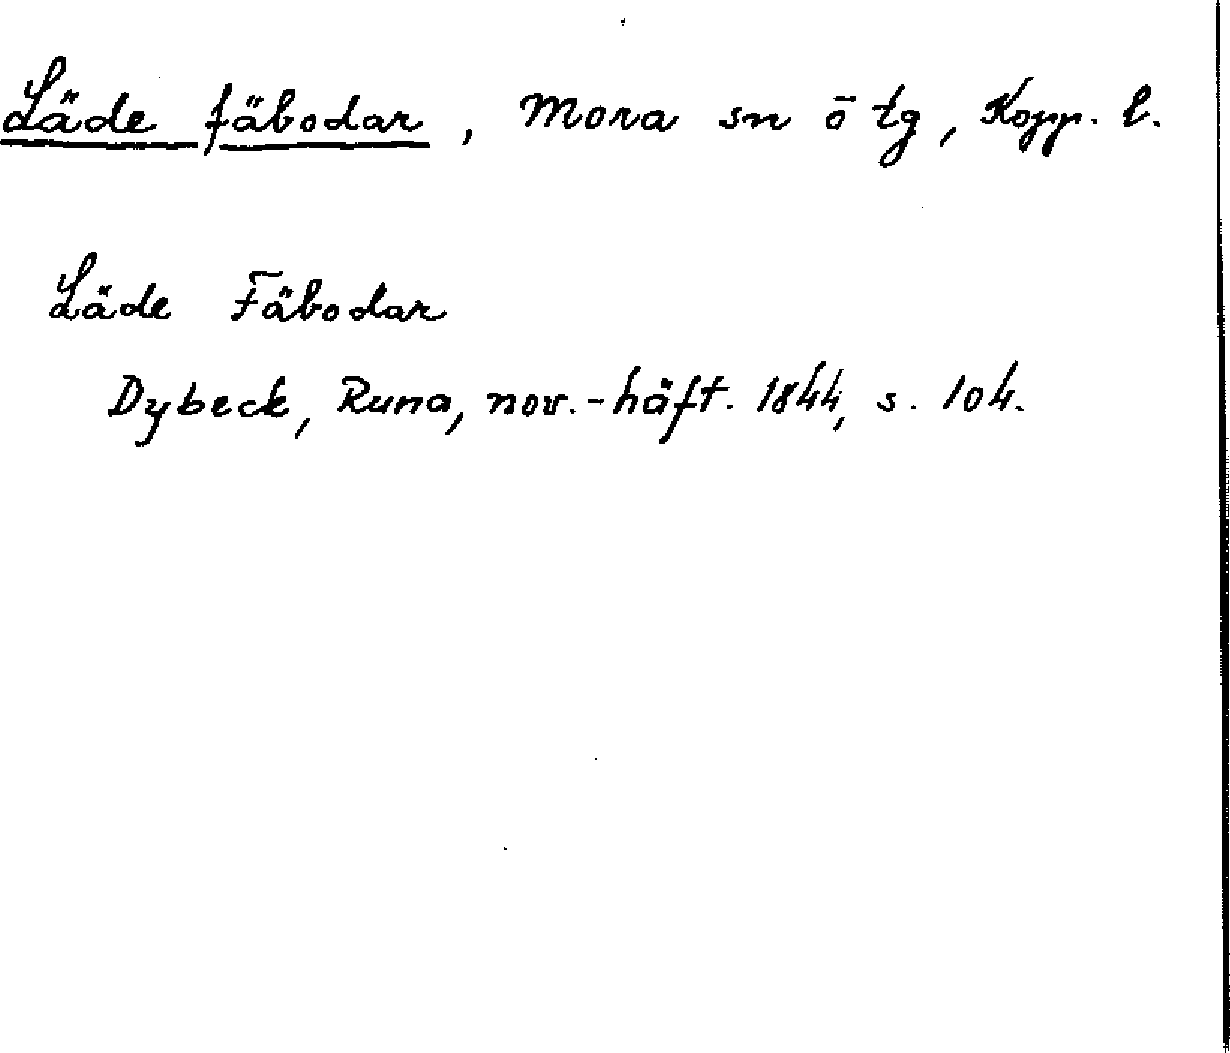 Läde fäbodar, Mora sn ö tg, Kopp. l.
Läde Fäbodar
Dybeck, Runa, nov.-häft. 1844, s. 104.